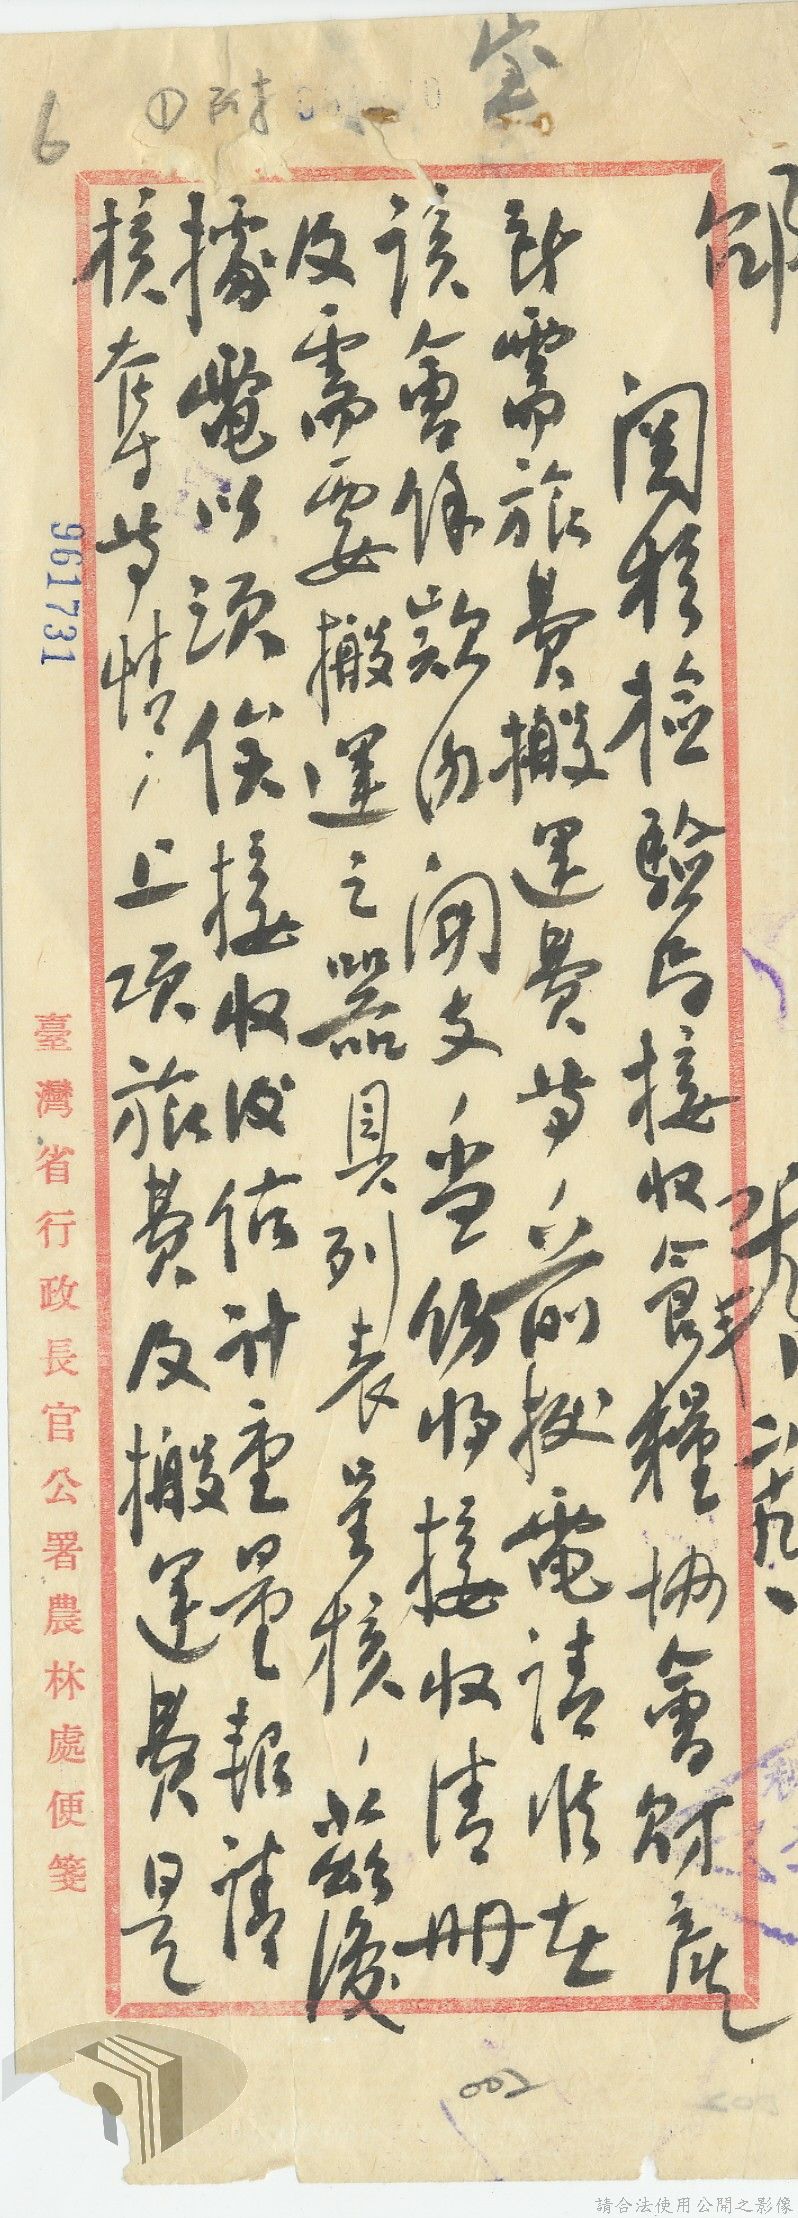 關於檢驗局接收食糧協會財產
所需旅費搬運費等、前據電請准在
該會餘款內開支、當飭將接收清册
及需要搬運之器具列表呈核、茲復
據電以須俟接收後估計重量報請
核奪等情、上項旅費及搬運費是
臺灣省行政長官公署農林處便箋
961731
6
①附
002
請合法使用公開之影像